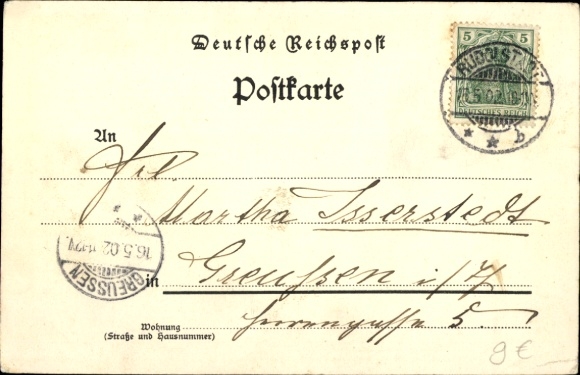 Deutsche Reichspost
Postkarte
5 5
DEUTSCHES REICH
RUDOLSTADT
16.5.02
* * b
An
Frl.
Martha Isserstedt
in Greußen i/Th
Herrengasse 5.
Wohnung
(Straße und Hausnummer)
GREUSSEN
16.5.02
* *
9 €